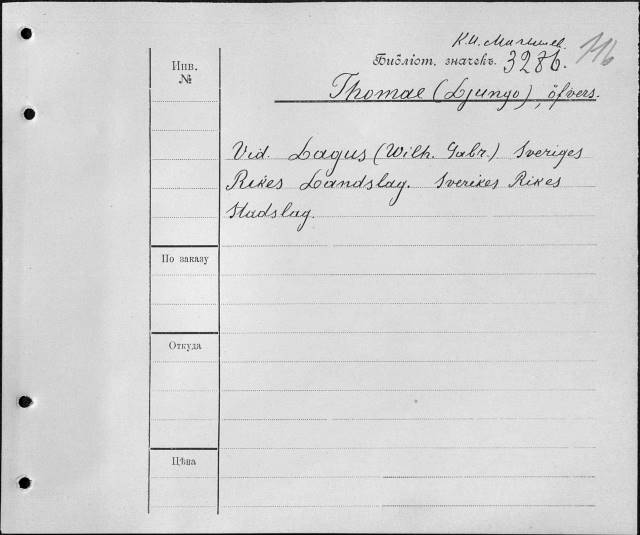 К.И. Малышев.
Инв.
№
Библіот. значекъ. 3286.
116
Thomae (Ljungo), öfvers.
Vid. Lagus (Wilh. Gabr.) Sveriges
Rikes Landslag. Sverikes Rikes
Stadslag.
По заказу
Откуда
Цѣна